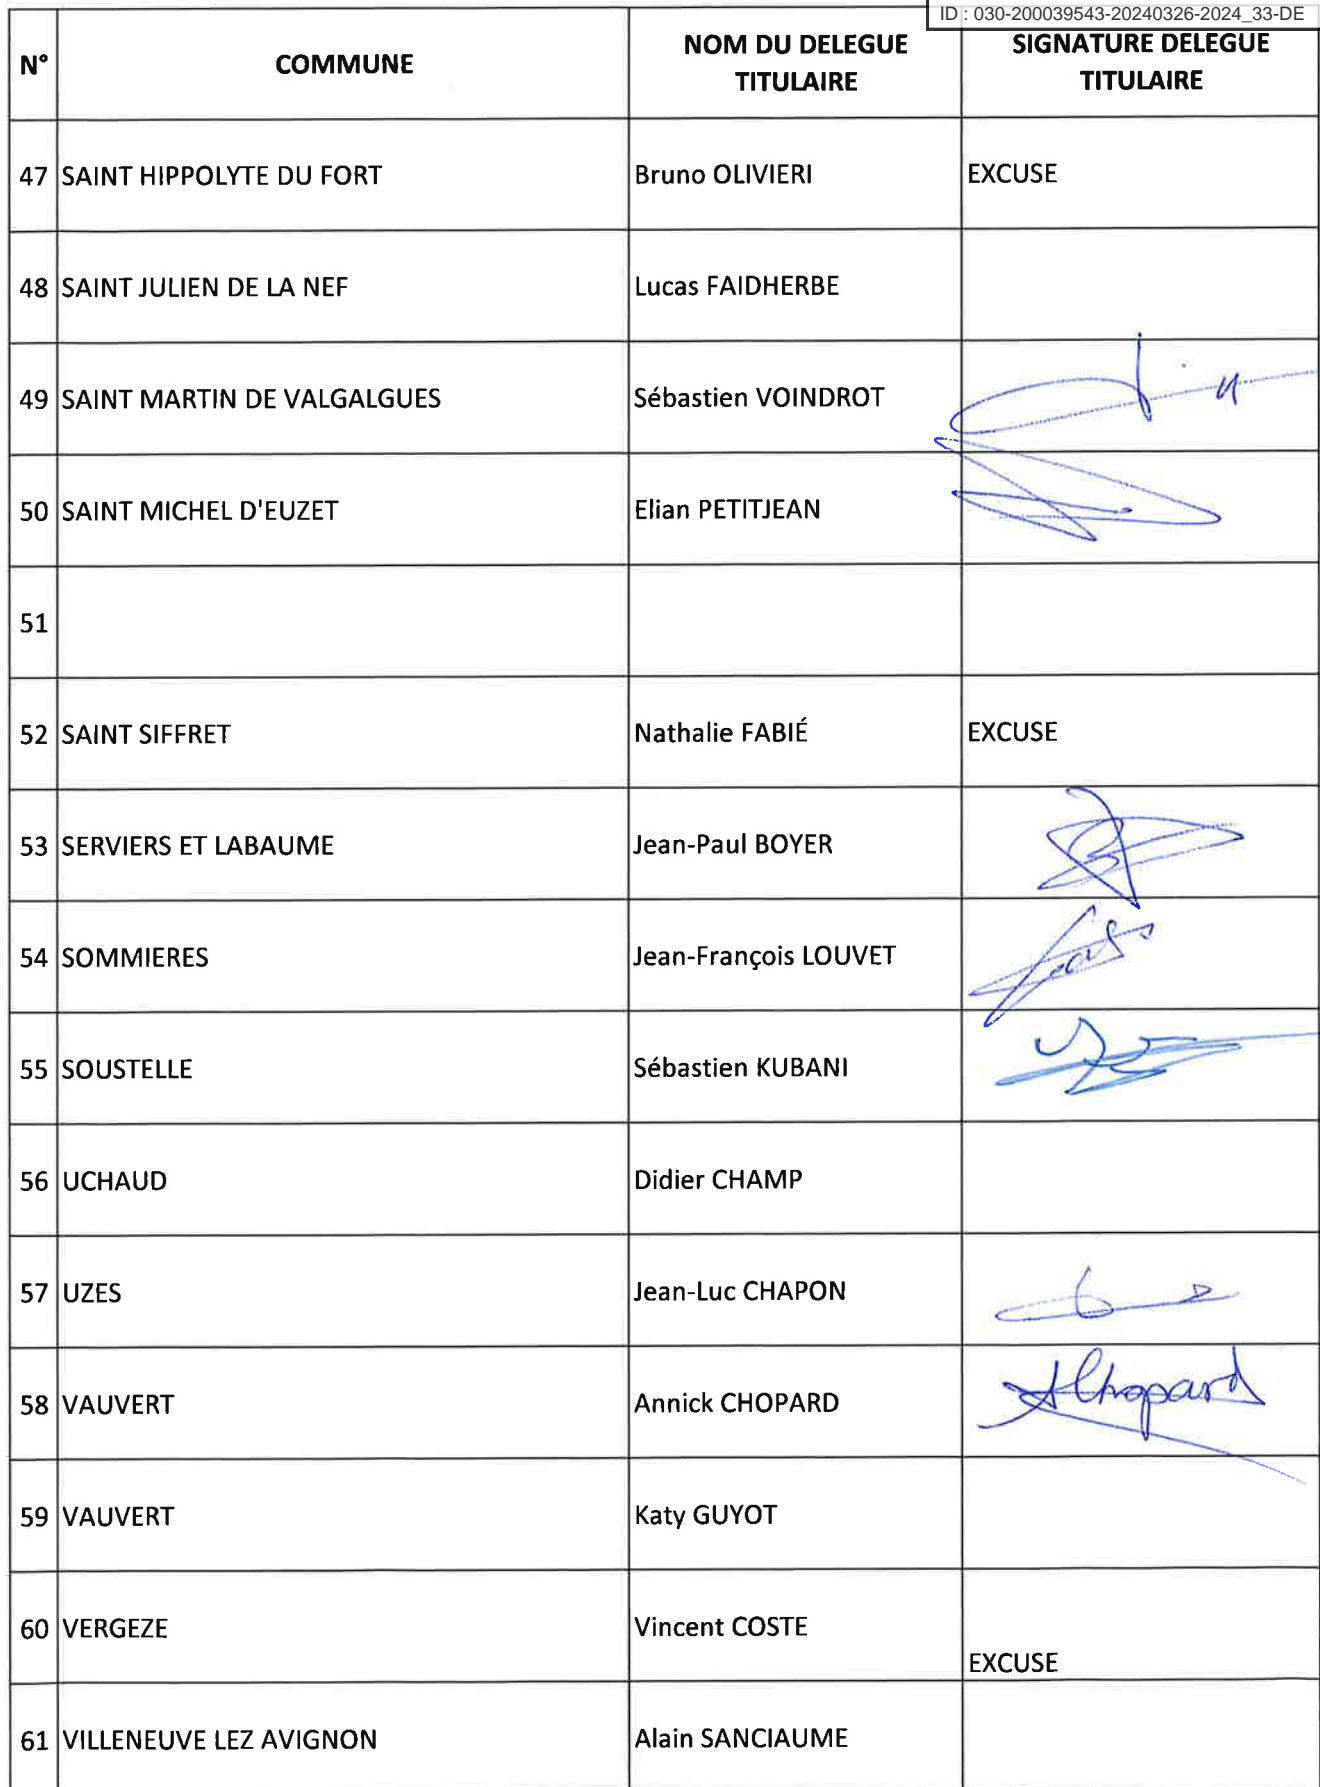 ID : 030-200039543-20240326-2024_33-DE
N° COMMUNE NOM DU DELEGUE TITULAIRE SIGNATURE DELEGUE TITULAIRE
47 SAINT HIPPOLYTE DU FORT Bruno OLIVIERI EXCUSE
48 SAINT JULIEN DE LA NEF Lucas FAIDHERBE
49 SAINT MARTIN DE VALGALGUES Sébastien VOINDROT
50 SAINT MICHEL D'EUZET Elian PETITJEAN
51
52 SAINT SIFFRET Nathalie FABIÉ EXCUSE
53 SERVIERS ET LABAUME Jean-Paul BOYER
54 SOMMIERES Jean-François LOUVET
55 SOUSTELLE Sébastien KUBANI
56 UCHAUD Didier CHAMP
57 UZES Jean-Luc CHAPON
58 VAUVERT Annick CHOPARD AChopard
59 VAUVERT Katy GUYOT
60 VERGEZE Vincent COSTE EXCUSE
61 VILLENEUVE LEZ AVIGNON Alain SANCIAUME